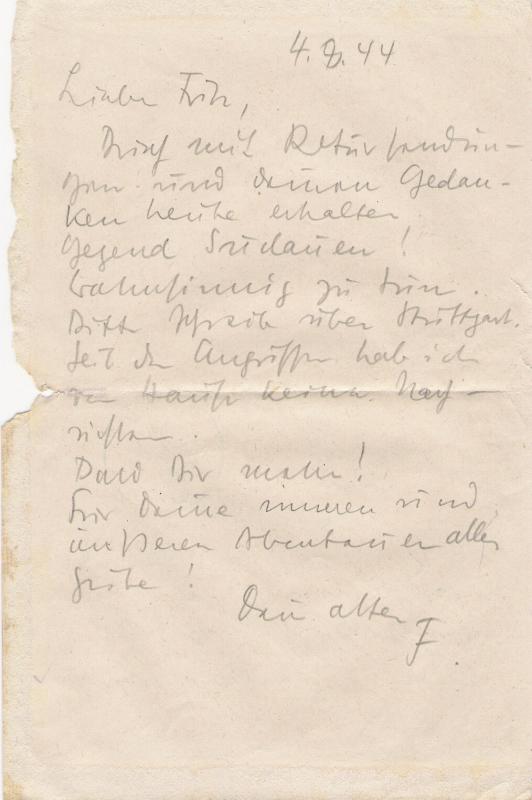 4.8.44
Lieber Fritz,
Brief mit Retürsendün-
gen und deinen Gedan-
ken heute erhalten
Gegend Sudauen!
Wahnsinnig zu tun.
Bitte schreib über Stuttgart.
Seit den Angriffen hab ich
von Hause keine Nach-
richten.
Bald Dir mehr!
Für Deine inneren und
äußeren Abenteuer alles
Gute!
Dein alter
F.